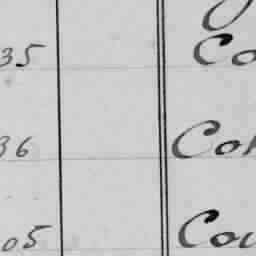 35 Co
36 Con
05 Cou